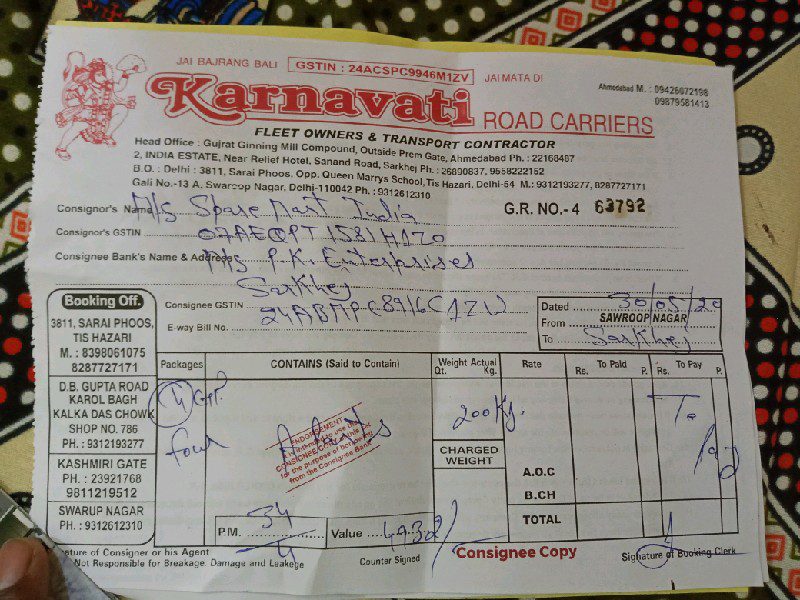 JAI BAJRANG BALI GSTIN : 24ACSPC9946M1ZV JAI MATA DI
Ahmedabad M. : 09426072198
09879581413
Karnavati ROAD CARRIERS
FLEET OWNERS & TRANSPORT CONTRACTOR
Head Office : Gujrat Ginning Mill Compound, Outside Prem Gate, Ahmedabad Ph. : 22168487
2, INDIA ESTATE, Near Relief Hotel, Sanand Road, Sarkhej Ph. : 26890837, 9558222152
B.O. : Delhi : 3811, Sarai Phoos, Opp. Queen Marrys School, Tis Hazari, Delhi-54 M.: 9312193277, 8287727171
Gali No.-13 A, Swaroop Nagar, Delhi-110042 Ph. : 9312612310
Consignor's Name M/s Spare Mart India
G.R. NO.-4 63792
Consignor's GSTIN 07AEQPT1581H1Z0
Consignee Bank's Name & Address M/s P.K. Enterprises
Sarkhej
Consignee GSTIN
E-way Bill No.
Dated 30/05/20
From SAWROOP NAGAR
To Sarkhej
Booking Off.
3811, SARAI PHOOS,
TIS HAZARI
M. : 8398061075
8287727171
D.B. GUPTA ROAD
KAROL BAGH
KALKA DAS CHOWK
SHOP NO. 786
PH. : 9312193277
KASHMIRI GATE
PH. : 23921768
9811219512
SWARUP NAGAR
PH. : 9312612310
Packages CONTAINS (Said to Contain) Weight Actual Rate To Paid To Pay
Qt. Kg. Rs. P. Rs. P.
4
four
200 Kg.
To
CHARGED
WEIGHT
A.O.C
B.CH
TOTAL
ENDORSEMENT
CONSIGNEE
for the purpose
from the Consignee Bank
P.M. 34
4
Value 4932/-
Signature of Consigner or his Agent
Not Responsible for Breakage, Damage and Leakege
Counter Signed
Consignee Copy
Signature of Booking Clerk